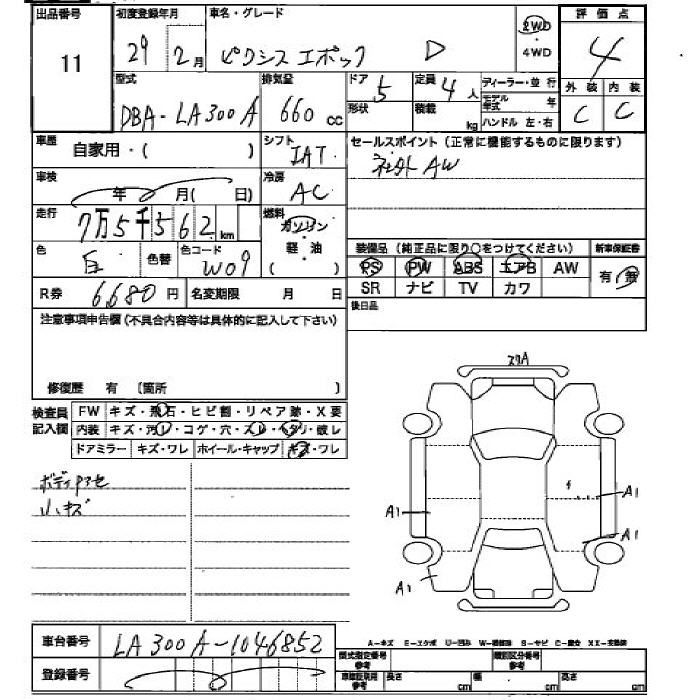 出品番号 初度登録年月 車名・グレード 2WD ・ 4WD 評価点
11 29 2月 ピクシス エポック D 4
型式 排気量 ドア 5 定員 4人 ディーラー・並行 外装 内装
DBA-LA300A 660cc 形状 積載 kg モデル年式 年 C C
ハンドル 左・右
車歴 自家用・( ) シフト IAT セールスポイント(正常に機能するものに限ります)
車検 年 月( 日) 冷房 AC 社外AW
走行 7万5千562km 燃料 ガソリン
軽・油
( )
色 白 色替 色コード W09 装備品(純正品に限り○をつけてください) 新車保証書
PS PW ABS エアB AW 有・無
SR ナビ TV カワ
R券 6,680円 名変期限 月 日 後日品
注意事項申告欄(不具合内容等は具体的に記入して下さい)
修復歴 有 [箇所 ]
検査員記入欄 FW キズ・飛石・ヒビ割・リペア跡・X要
内装 キズ・汚レ・コゲ・穴・スレ・ヘタリ・破レ
ドアミラー キズ・ワレ ホイール・キャップ キズ・ワレ
ボディ
小キズ
A1
A1
A1
A1
A-キズ E-エクボ U-凹み W-補修跡 S-サビ C-腐食 XX-交換済
車台番号 LA300A-1046852
登録番号
型式指定番号 参考 類別区分番号 参考
参考 長さ cm 幅 cm 高さ cm